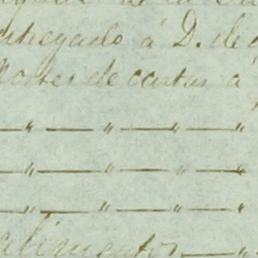 entregado á D.
Portes de cartas á
— " — " — " — "
— " — " — " — "
— " — " — " — "
alimentos — "